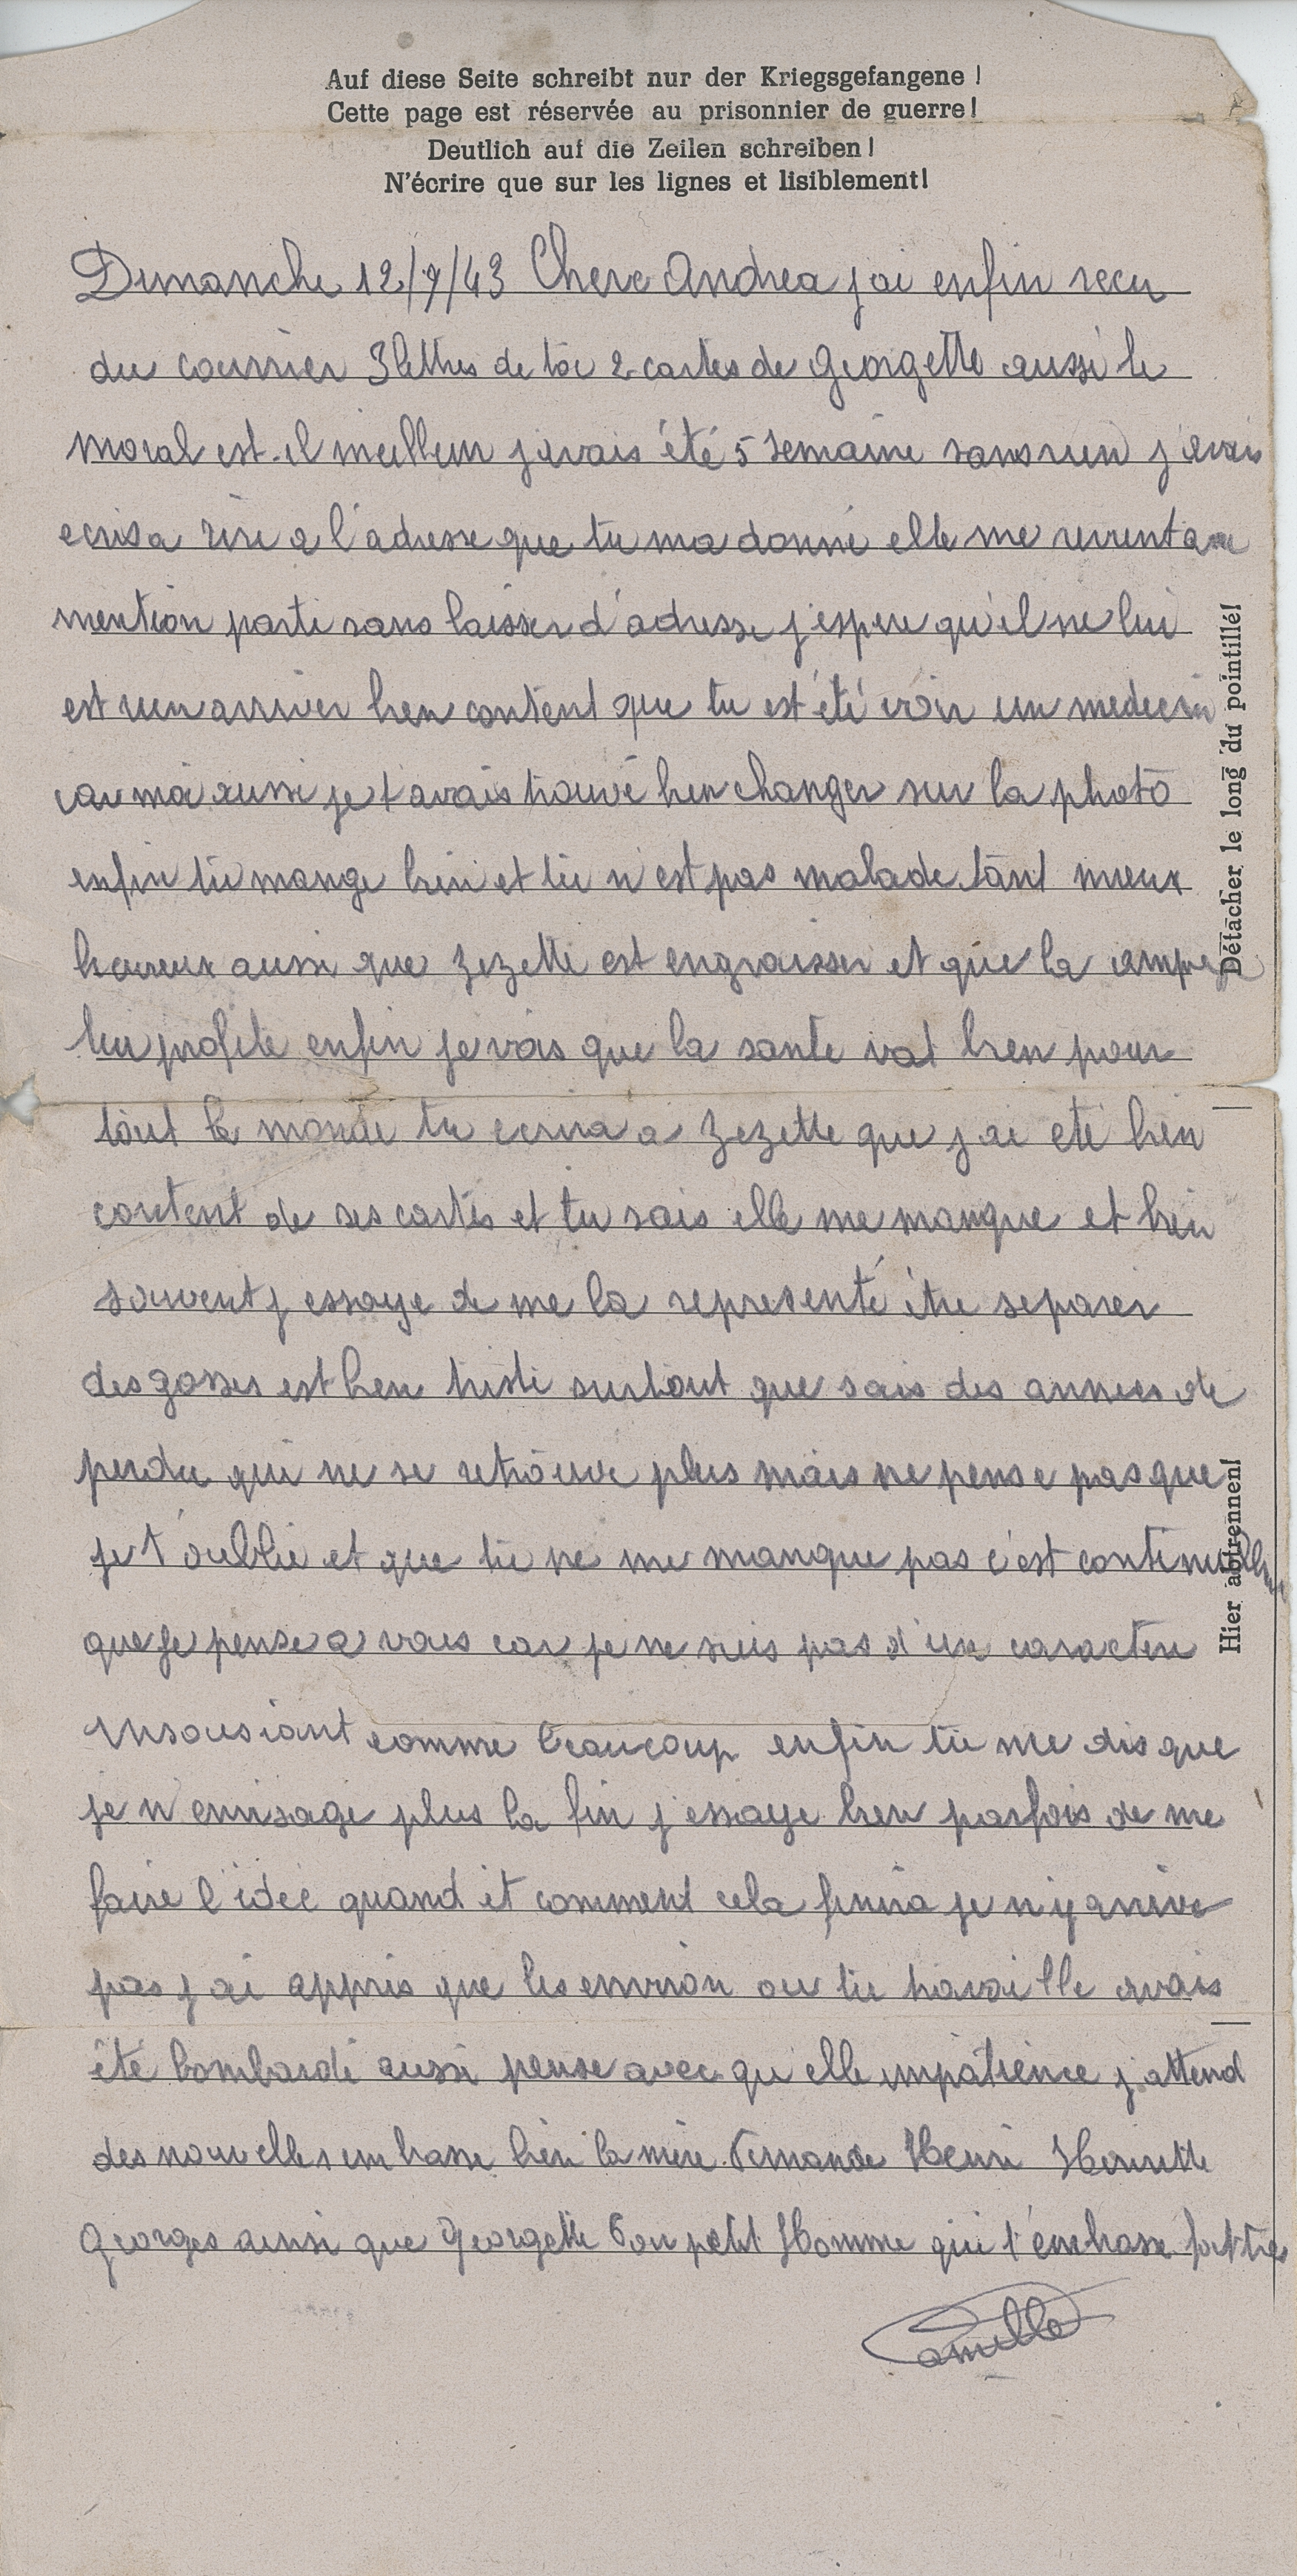 Auf diese Seite schreibt nur der Kriegsgefangene!
Cette page est réservée au prisonnier de guerre!
Deutlich auf die Zeilen schreiben!
N'écrire que sur les lignes et lisiblement!
Dimanche 12/9/43 Chere Andrea j ai enfin recu
du courrier 3 lettres de toi 2 cartes de Georgette aussi le
moral est-il meilleur j avais été 5 semaine sans rien j avais
ecris a l'adresse que tu ma donné elle me revient avec
mention parti sans laisser d'adresse j'espere qu'il ne lui
est rien arriver bien content que tu est été voir un medecin
car moi aussi je t avais trouvé bien changer sur la photo
enfin tu mange bien et tu n est pas malade tant mieux
heureux aussi que Zezette est engraisser et que la
lui profite enfin je vois que la sante vat bien pour
tout le monde tu ecrira a Zezette que j ai eté bien
content de ses cartes et tu sais elle me manque et bien
souvent j essaye de me la representé être separer
des gosses est bien triste surtout que sais des annees de
perdu qui ne se retrouve plus mais ne pense pas que
je t'oublie et que tu ne me manque pas c'est
que je pense a vous car je ne suis pas d'un caractere
insousiant comme beaucoup enfin tu me dis que
je n envisage plus la fin j'essaye bien parfois de me
faire l'idée quand et comment cela finira je n'y arrive
pas j ai appris que les environ ou tu travaille avais
été bombardé aussi pense avec qu'elle impatience j attend
des nouvelles embrasse bien la mère Fernande Henri Henriette
Georges ainsi que Georgette Ton petit Homme qui t'embrasse
Camille
Détacher le long du pointillé!
Hier abtrennen!